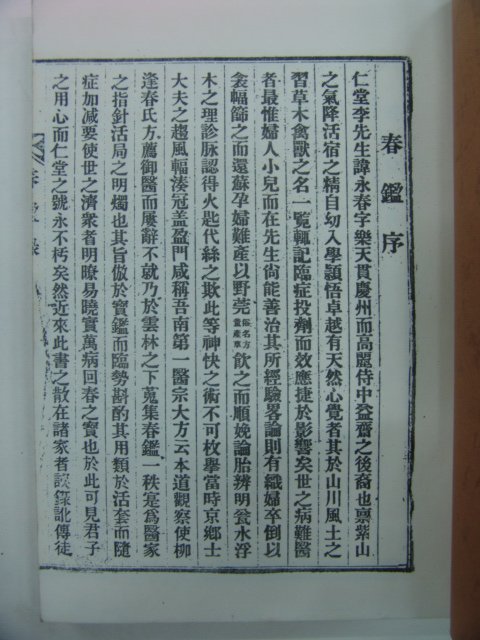 春鑑序
仁堂李先生諱永春字樂天貫慶州而高麗侍中益齋之後裔也禀紫山
之氣降活宿之精自幼入學頴悟卓越有天然心覺者其於山川風土之
習草木禽獸之名一覧輒記臨症投劑而效應捷於影響矣世之病難醫
者最惟婦人小兒而在先生尙能善治其所經驗畧論則有織婦卒倒以
衾幅篩之而還蘇孕婦難產以野莞俗名方童產草飮之而順娩論胎辨明瓮水浮
木之理診脉認得火匙代絲之欺此等神快之術不可枚擧當時京鄕士
大夫之趨風輻湊冠盖盈門咸稱吾南第一醫宗大方云本道觀察使柳
逢春氏方薦御醫而屢辭不就乃於雲林之下蒐集春鑑一秩寔爲醫家
之指針活局之明燭也其旨倣於寶鑑而臨勢斟酌其用類於活套而隨
症加減要使世之濟衆者明瞭易曉實萬病回春之寶也於此可見君子
之用心而仁堂之號永不朽矣然近來此書之散在諸家者謄錄訛傳徒